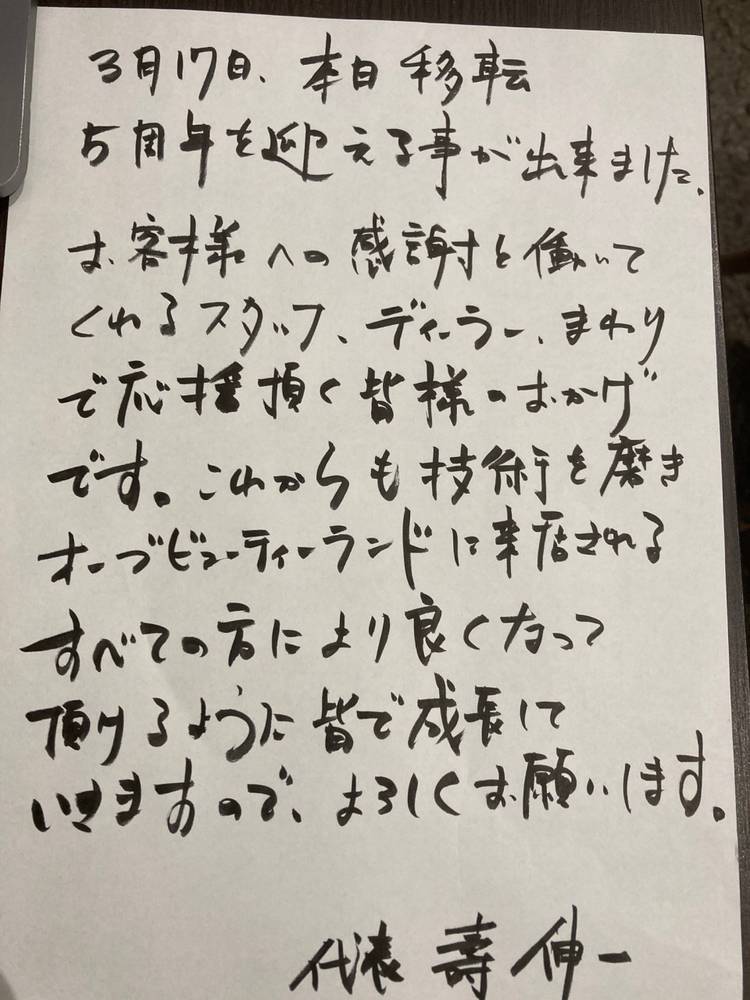 3月17日、本日移転
5周年を迎える事が出来ました。
お客様への感謝と働いて
くれるスタッフ、ディーラー、まわり
で応援頂く皆様のおかげ
です。これからも技術を磨き
オーブビューティーランドに来店される
すべての方により良くなって
頂けるように皆で成長して
いきますので、よろしくお願いします。
代表 壽 伸一